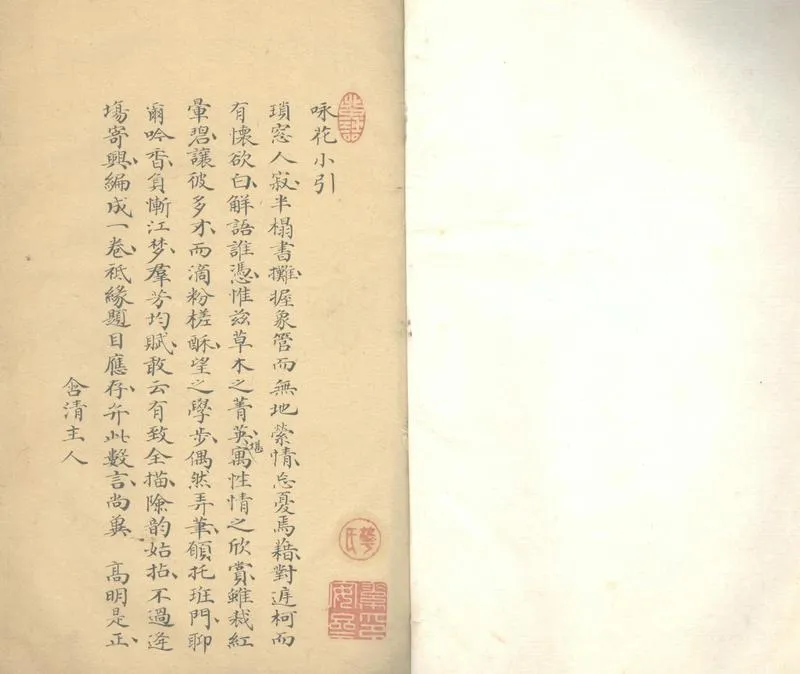 咏花小引
瑣窓人寂半榻書攤握象管而無地縈情忘憂焉藉對庭柯而
有懷欲白解語誰憑惟茲草木之菁英堪寓性情之欣賞雖裁紅
暈碧讓彼多才而滴粉槎酥望之學步偶然弄筆願托班門聊
爾吟香負慚江梦羣芳均賦敢云有致全描險韵姑拈不過逢
塲寄興編成一卷祗緣題目應存弁此數言尚冀 高明是正
含清主人
華氏